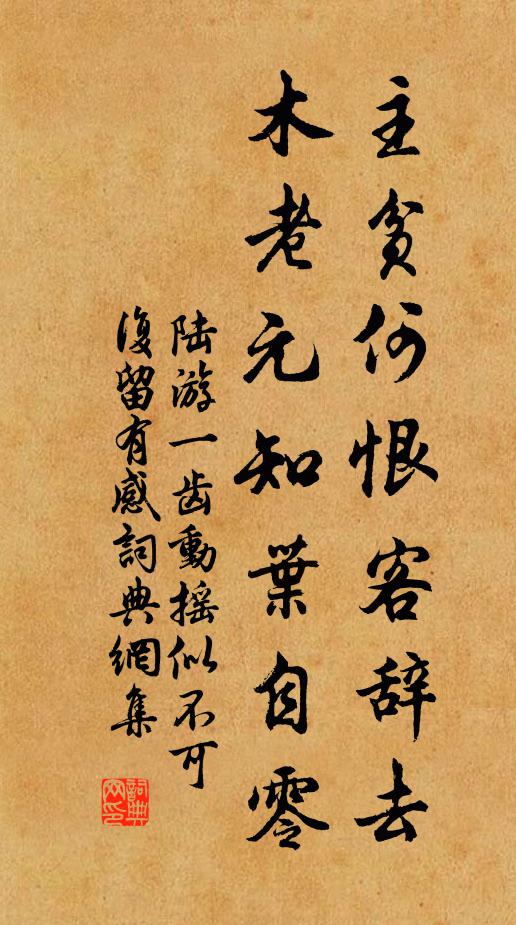 主贫何恨客辞去
木老元知葉自零
陆游一齿動摇似不可
復留有感詞典網集
詞典
网印